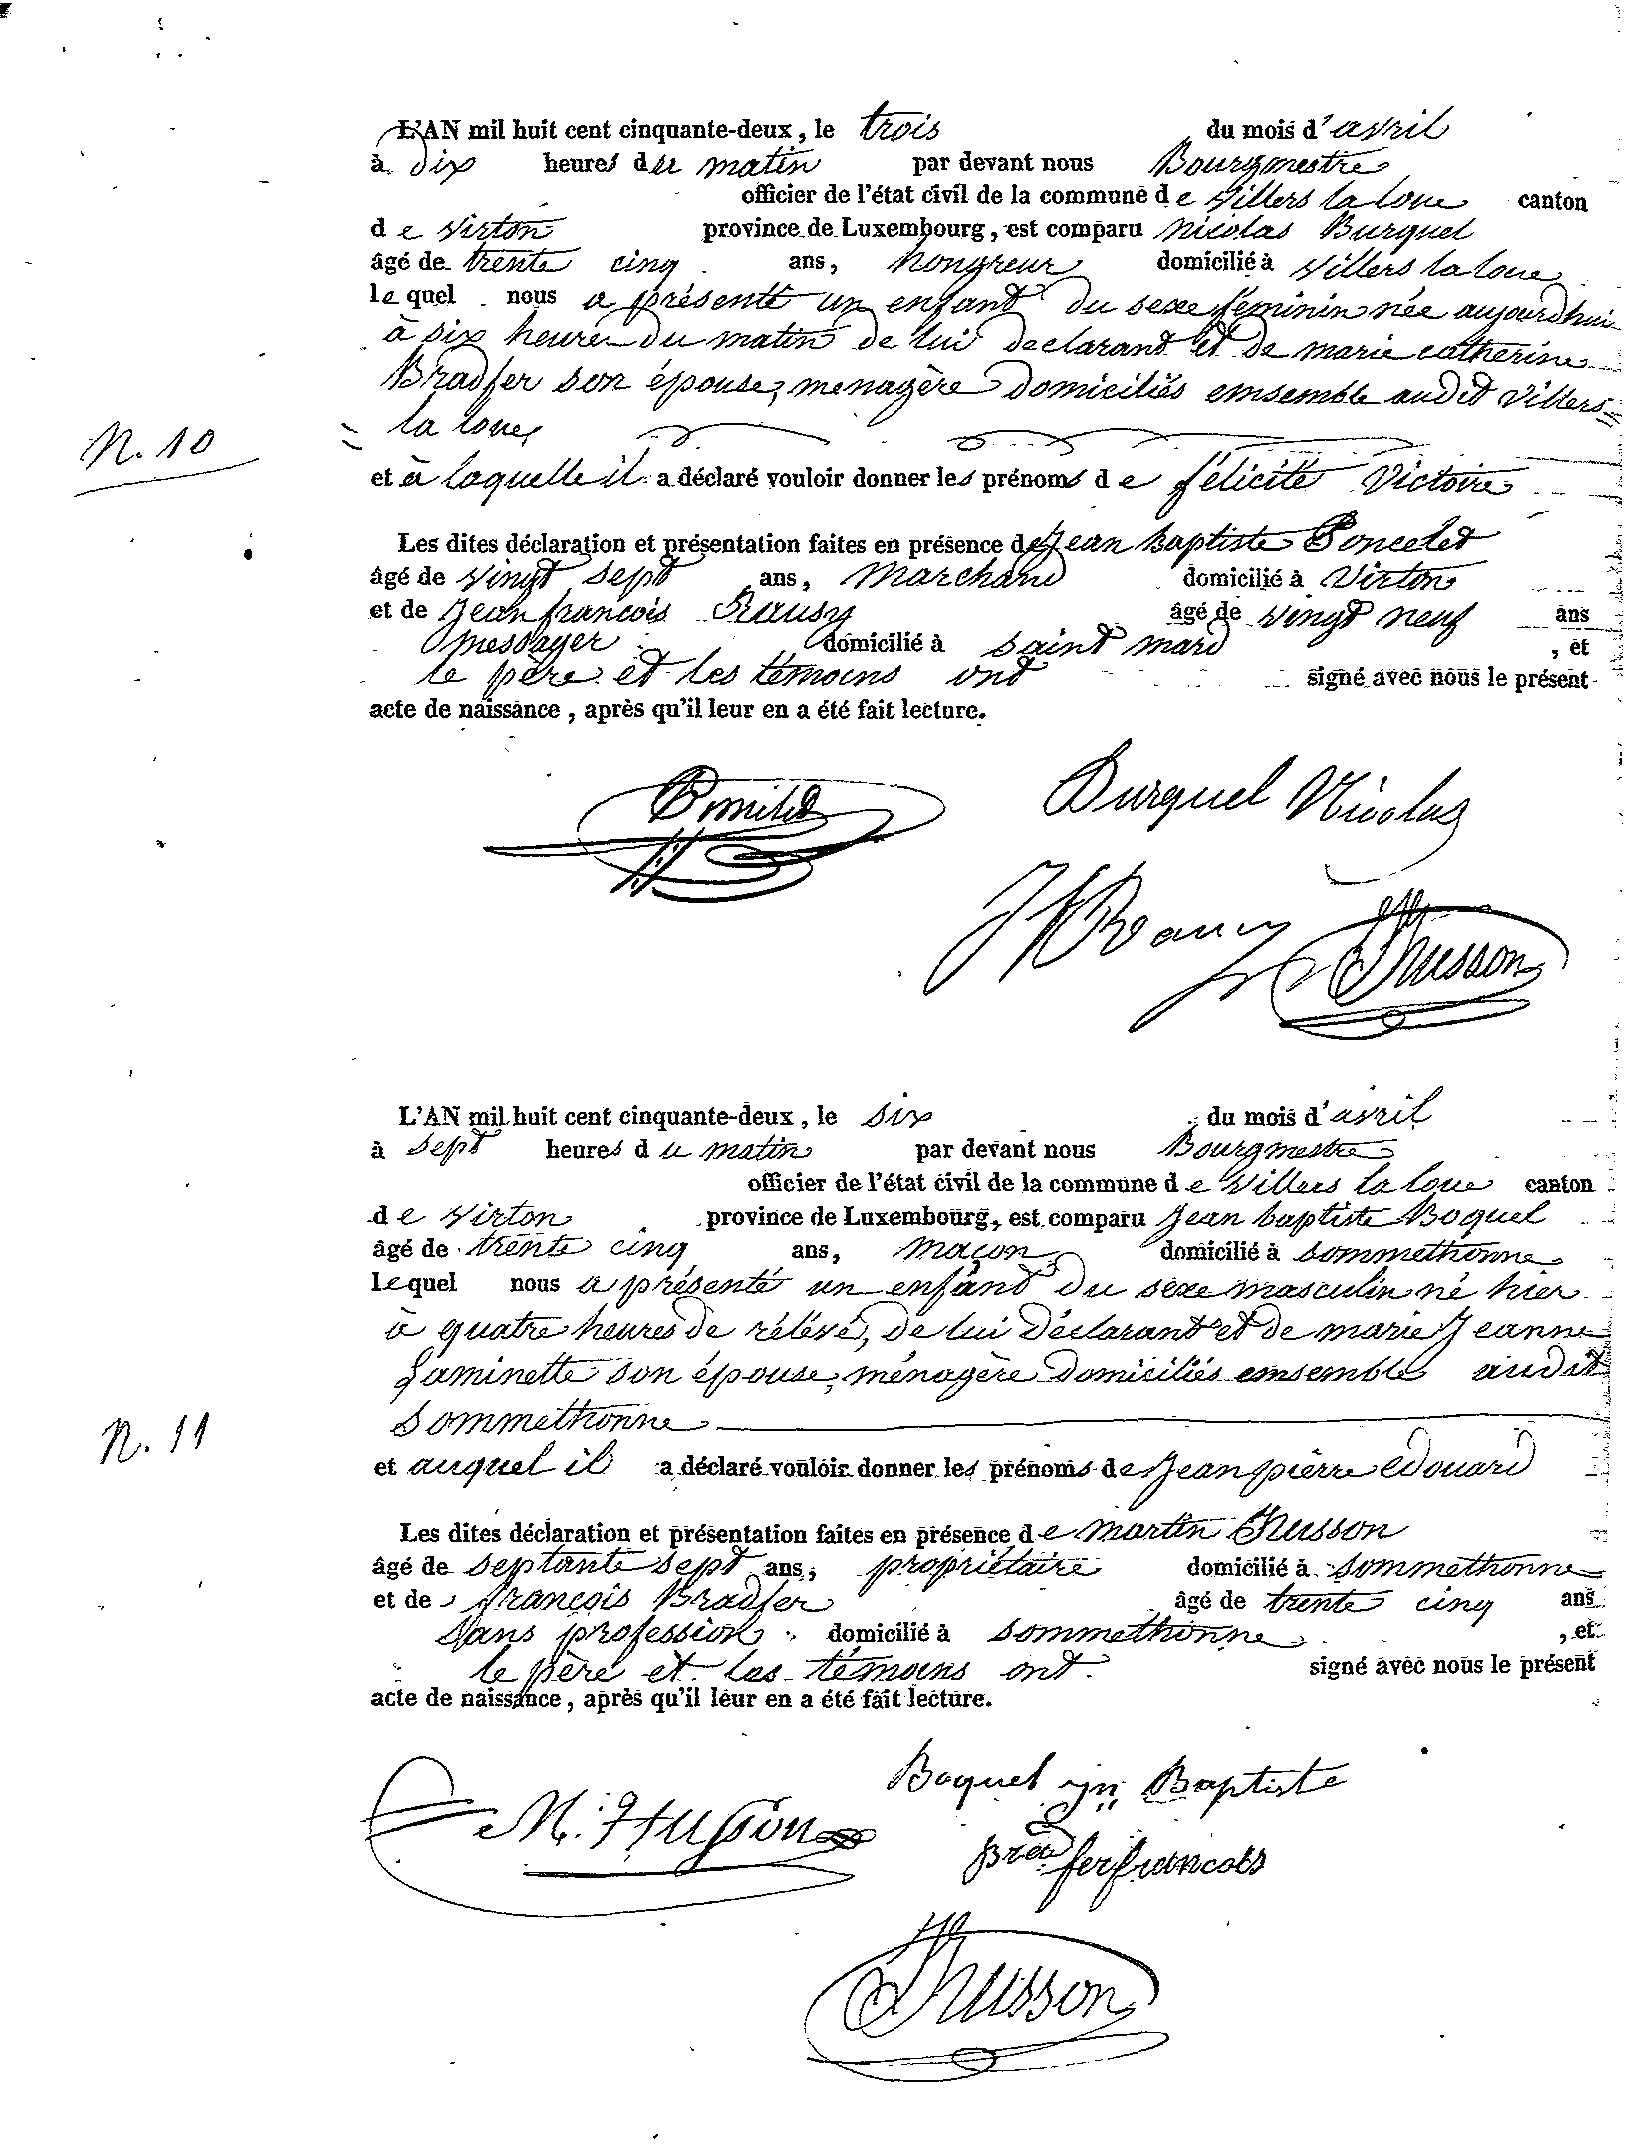 L'AN mil huit cent cinquante-deux, le trois du mois d'avril
à dix heures du matin par devant nous Bourgmestre
officier de l'état civil de la commune de Villers la loue canton
de Virton province de Luxembourg, est comparu Nicolas Burquel
âgé de trente cinq ans, hongreur domicilié à Villers la loue
lequel nous a présenté un enfant du sexe féminin née aujourdhui
à six heures du matin de lui declarant et de marie catherine
Bradfer son épouse, menagère domiciliés emsemble audit Villers
N. 10
la loue,
et à laquelle il a déclaré vouloir donner les prénoms de félicité Victoire
Les dites déclaration et présentation faites en présence de Jean baptiste Poncelet
âgé de vingt sept ans, Marchand domicilié à Virton
et de Jean francois Rausy âgé de vingt neuf ans
messager domicilié à saint mard , et
le père et les témoins ont signé avec nous le présent
acte de naissance, après qu'il leur en a été fait lecture.
Burquel Nicolas
Husson
L'AN mil huit cent cinquante-deux, le six du mois d'avril
à sept heures du matin par devant nous Bourgmestre
officier de l'état civil de la commune de Villers la loue canton
de Virton province de Luxembourg, est comparu Jean baptiste Boquel
âgé de trente cinq ans, maçon domicilié à sommethonne
lequel nous a présenté un enfant du sexe masculin né hier
à quatre heures de rélévé, de lui déclarant et de marie Jeanne
Laminette son épouse, ménagère domiciliés emsemble audit
N. 11
Sommethonne
et auquel il a déclaré vouloir donner les prénoms de Jean pierre edouard
Les dites déclaration et présentation faites en présence de martin Husson
âgé de septante sept ans, propriétaire domicilié à sommethonne
et de françois Bradfer âgé de trente cinq ans
sans profession domicilié à sommethonne , et
le père et les témoins ont signé avec nous le présent
acte de naissance, après qu'il leur en a été fait lecture.
Boquel jn Baptiste
M. Husson
Bradfer francois
Husson